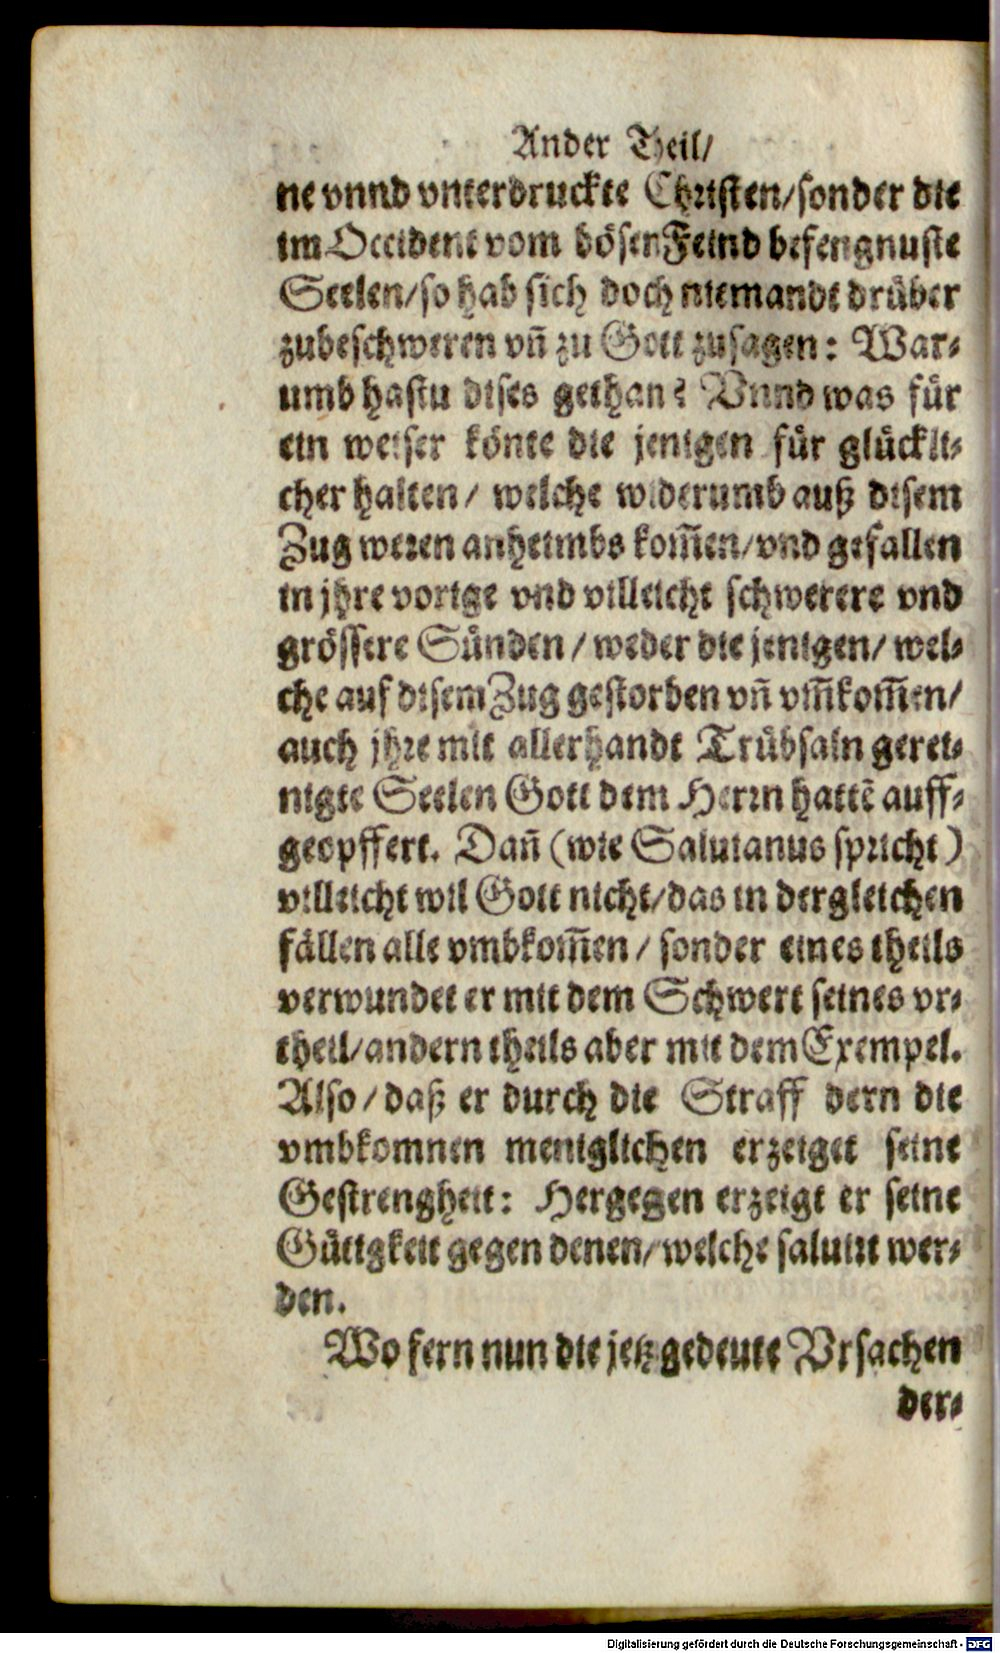 Ander Theil/
ne vnnd vnterdruckte Christen/sonder die
im Occident vom bösen Feind befengnuste
Seelen/so hab sich doch niemandt drüber
zubeschweren vñ zu Gott zusagen: War-
umb hastu dises gethan? Vnnd was für
ein weiser könte die jenigen für glückli-
cher halten/ welche widerumb auß disem
Zug weren anheimbs kom̃en/vnd gefallen
in jhre vorige vnd villeicht schwerere vnd
grössere Sünden/ weder die jenigen/ wel-
che auf disem Zug gestorben vñ vm̃kom̃en/
auch jhre mit allerhandt Trübsaln gerei-
nigte Seelen Gott dem Herrn hattẽ auff-
geopffert. Dañ (wie Saluianus spricht)
villeicht wil Gott nicht/das in dergleichen
fällen alle vmbkom̃en/ sonder eines theils
verwundet er mit dem Schwert seines vr-
theil/andern theils aber mit dem Exempel.
Also/daß er durch die Straff dern die
vmbkomnen meniglichen erzeiget seine
Gestrengheit: Hergegen erzeigt er seine
Gütigkeit gegen denen/welche saluirt wer-
den.
Wo fern nun die jetz gedeute Vrsachen
der-
Digitalisierung gefördert durch die Deutsche Forschungsgemeinschaft - DFG